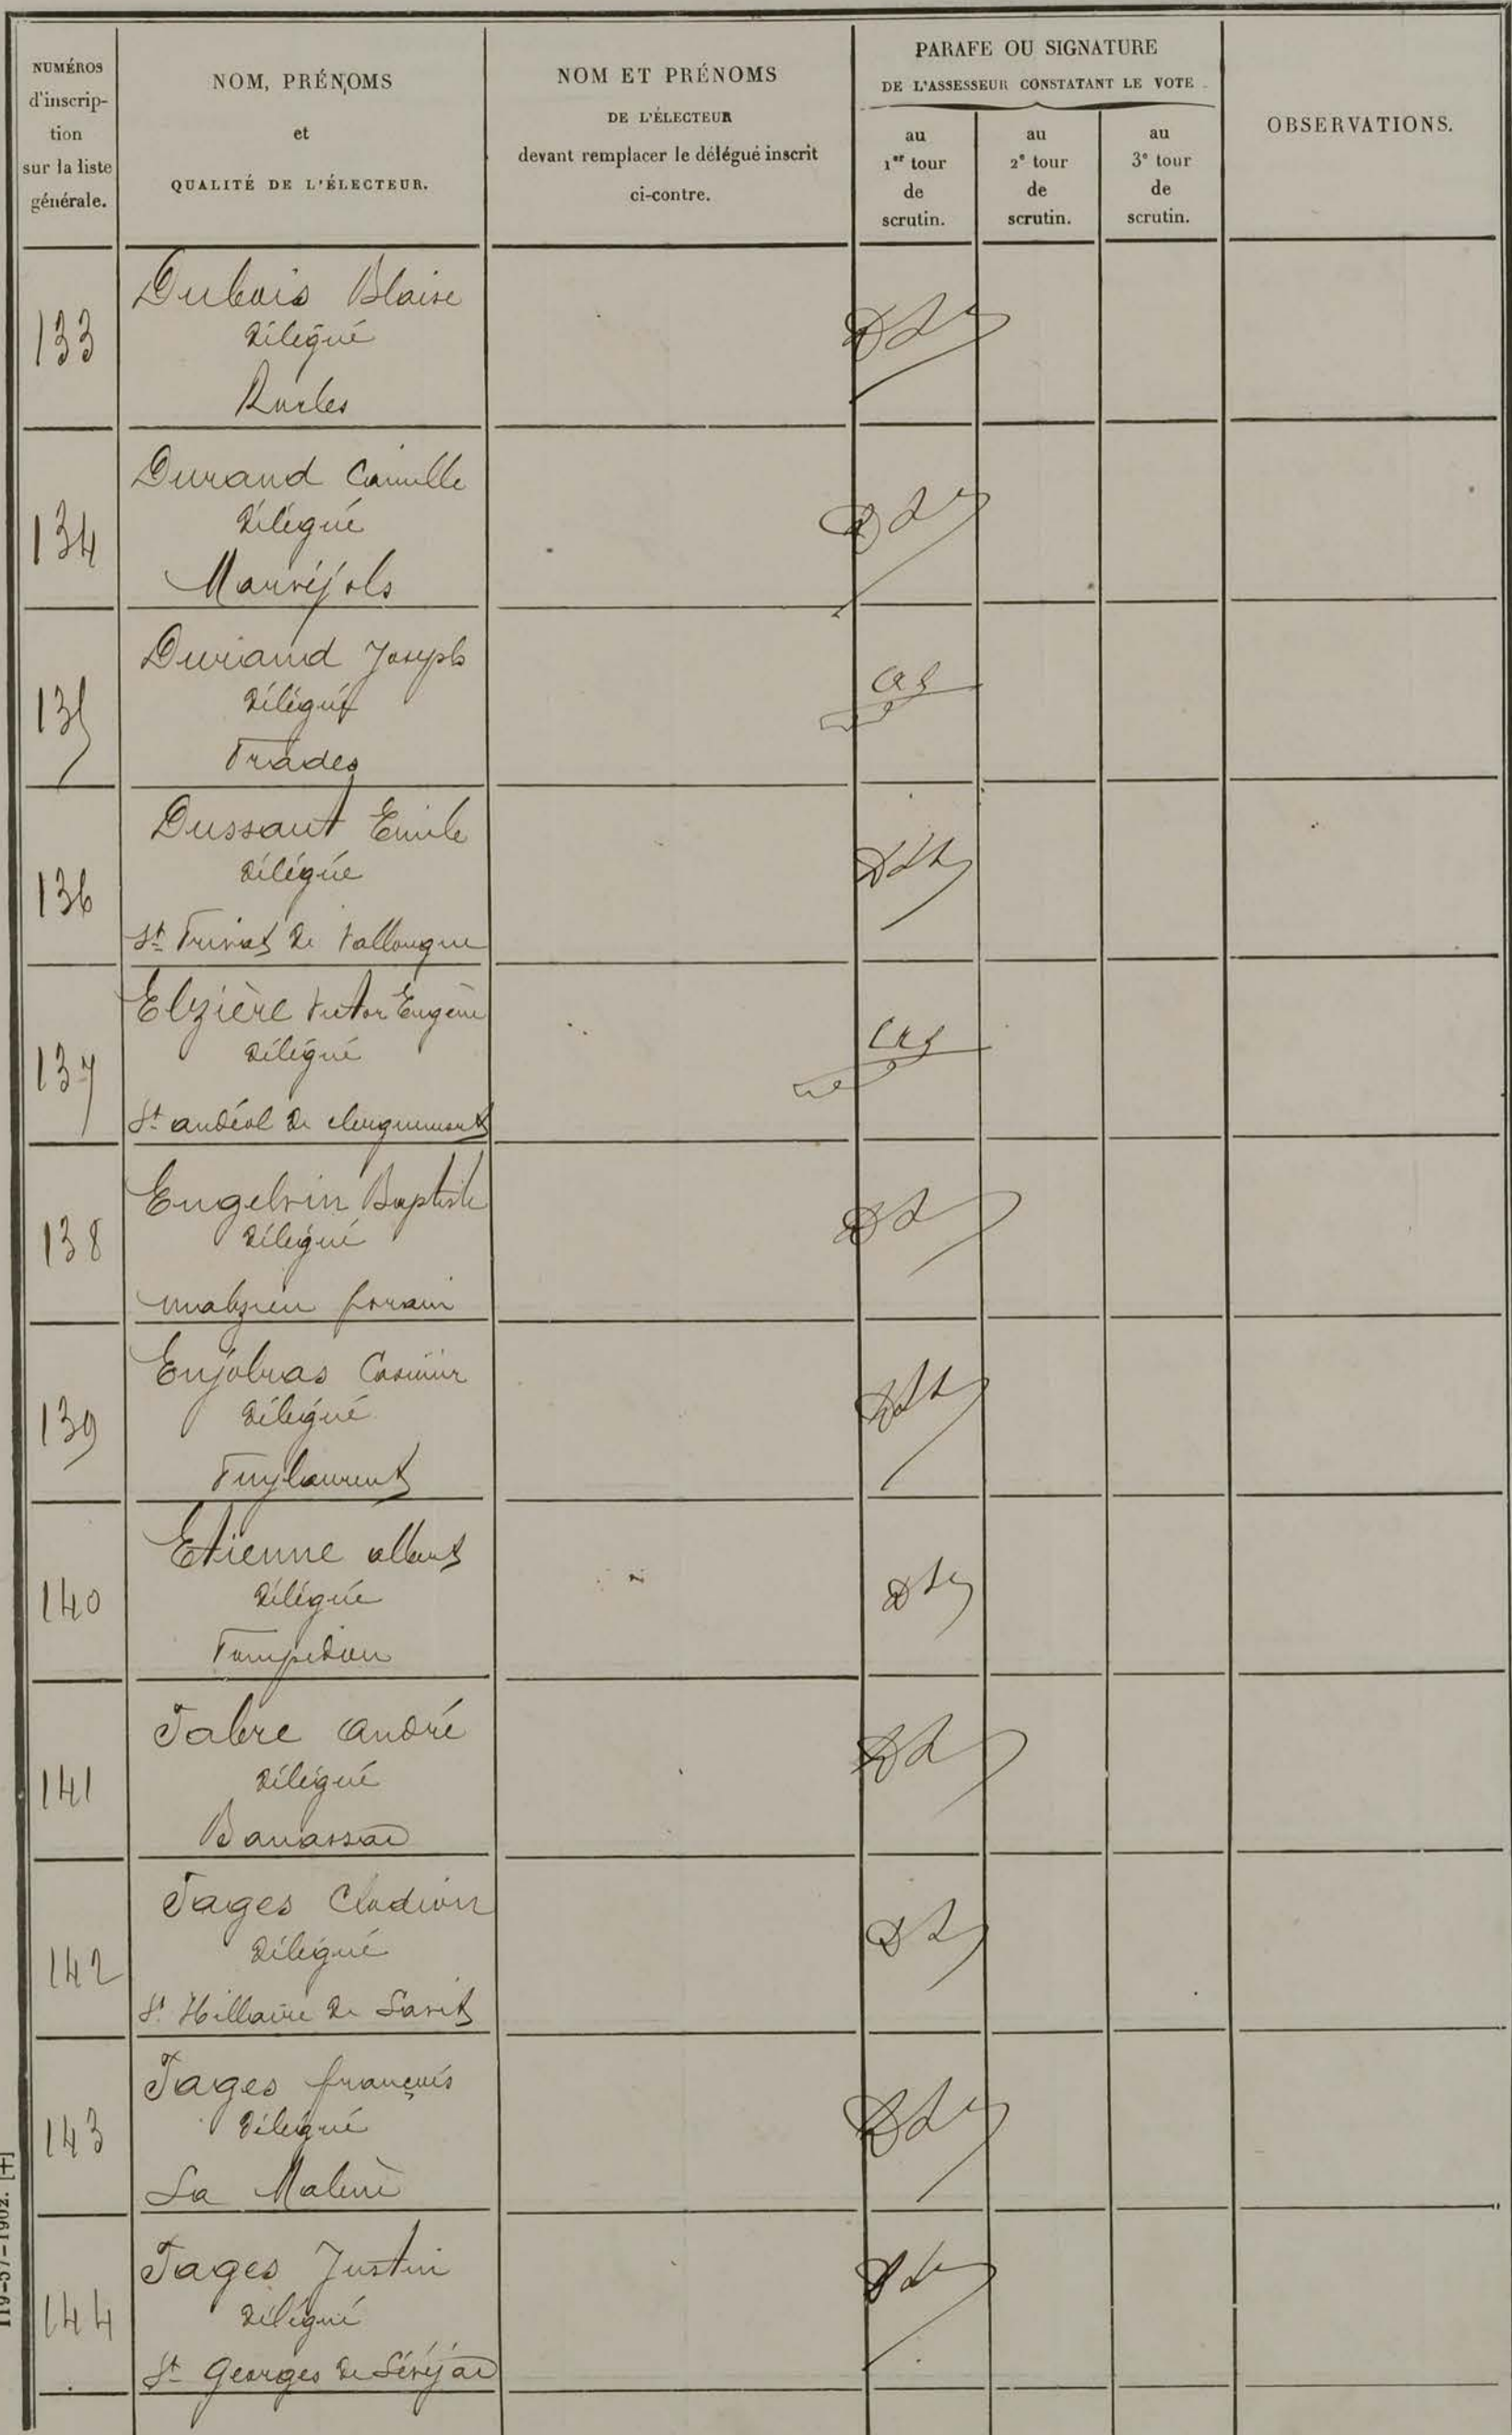 NUMÉROS
d'inscrip-
tion
sur la liste
générale.
NOM, PRÉNOMS
et
QUALITÉ DE L'ÉLECTEUR.
NOM ET PRÉNOMS
DE L'ÉLECTEUR
devant remplacer le délégué inscrit
ci-contre.
PARAFE OU SIGNATURE
DE L'ASSESSEUR CONSTATANT LE VOTE
au
1er tour
de
scrutin.
au
2e tour
de
scrutin.
au
3e tour
de
scrutin.
OBSERVATIONS.
133
Dubois Blaise
Délégué
Rocles
134
Durand Camille
Délégué
Marvéjols
135
Durand Joseph
Délégué
Prades
136
Dussaut Emile
Délégué
St Privat de Vallongue
137
Elzière Victor Eugène
Délégué
St andéol de clerguemort
138
Engelvin Baptiste
Délégué
malzieu forain
139
Enjolras Casimir
Délégué
Puylaurent
140
Etienne albert
Délégué
Pompidou
141
Fabre andré
Délégué
Banassac
142
Fages Clodion
Délégué
St Hillaire de Lavit
143
Fages françois
Délégué
La Malène
144
Fages Justin
Délégué
St Georges de Lévéjac
119-57-1902. [+]